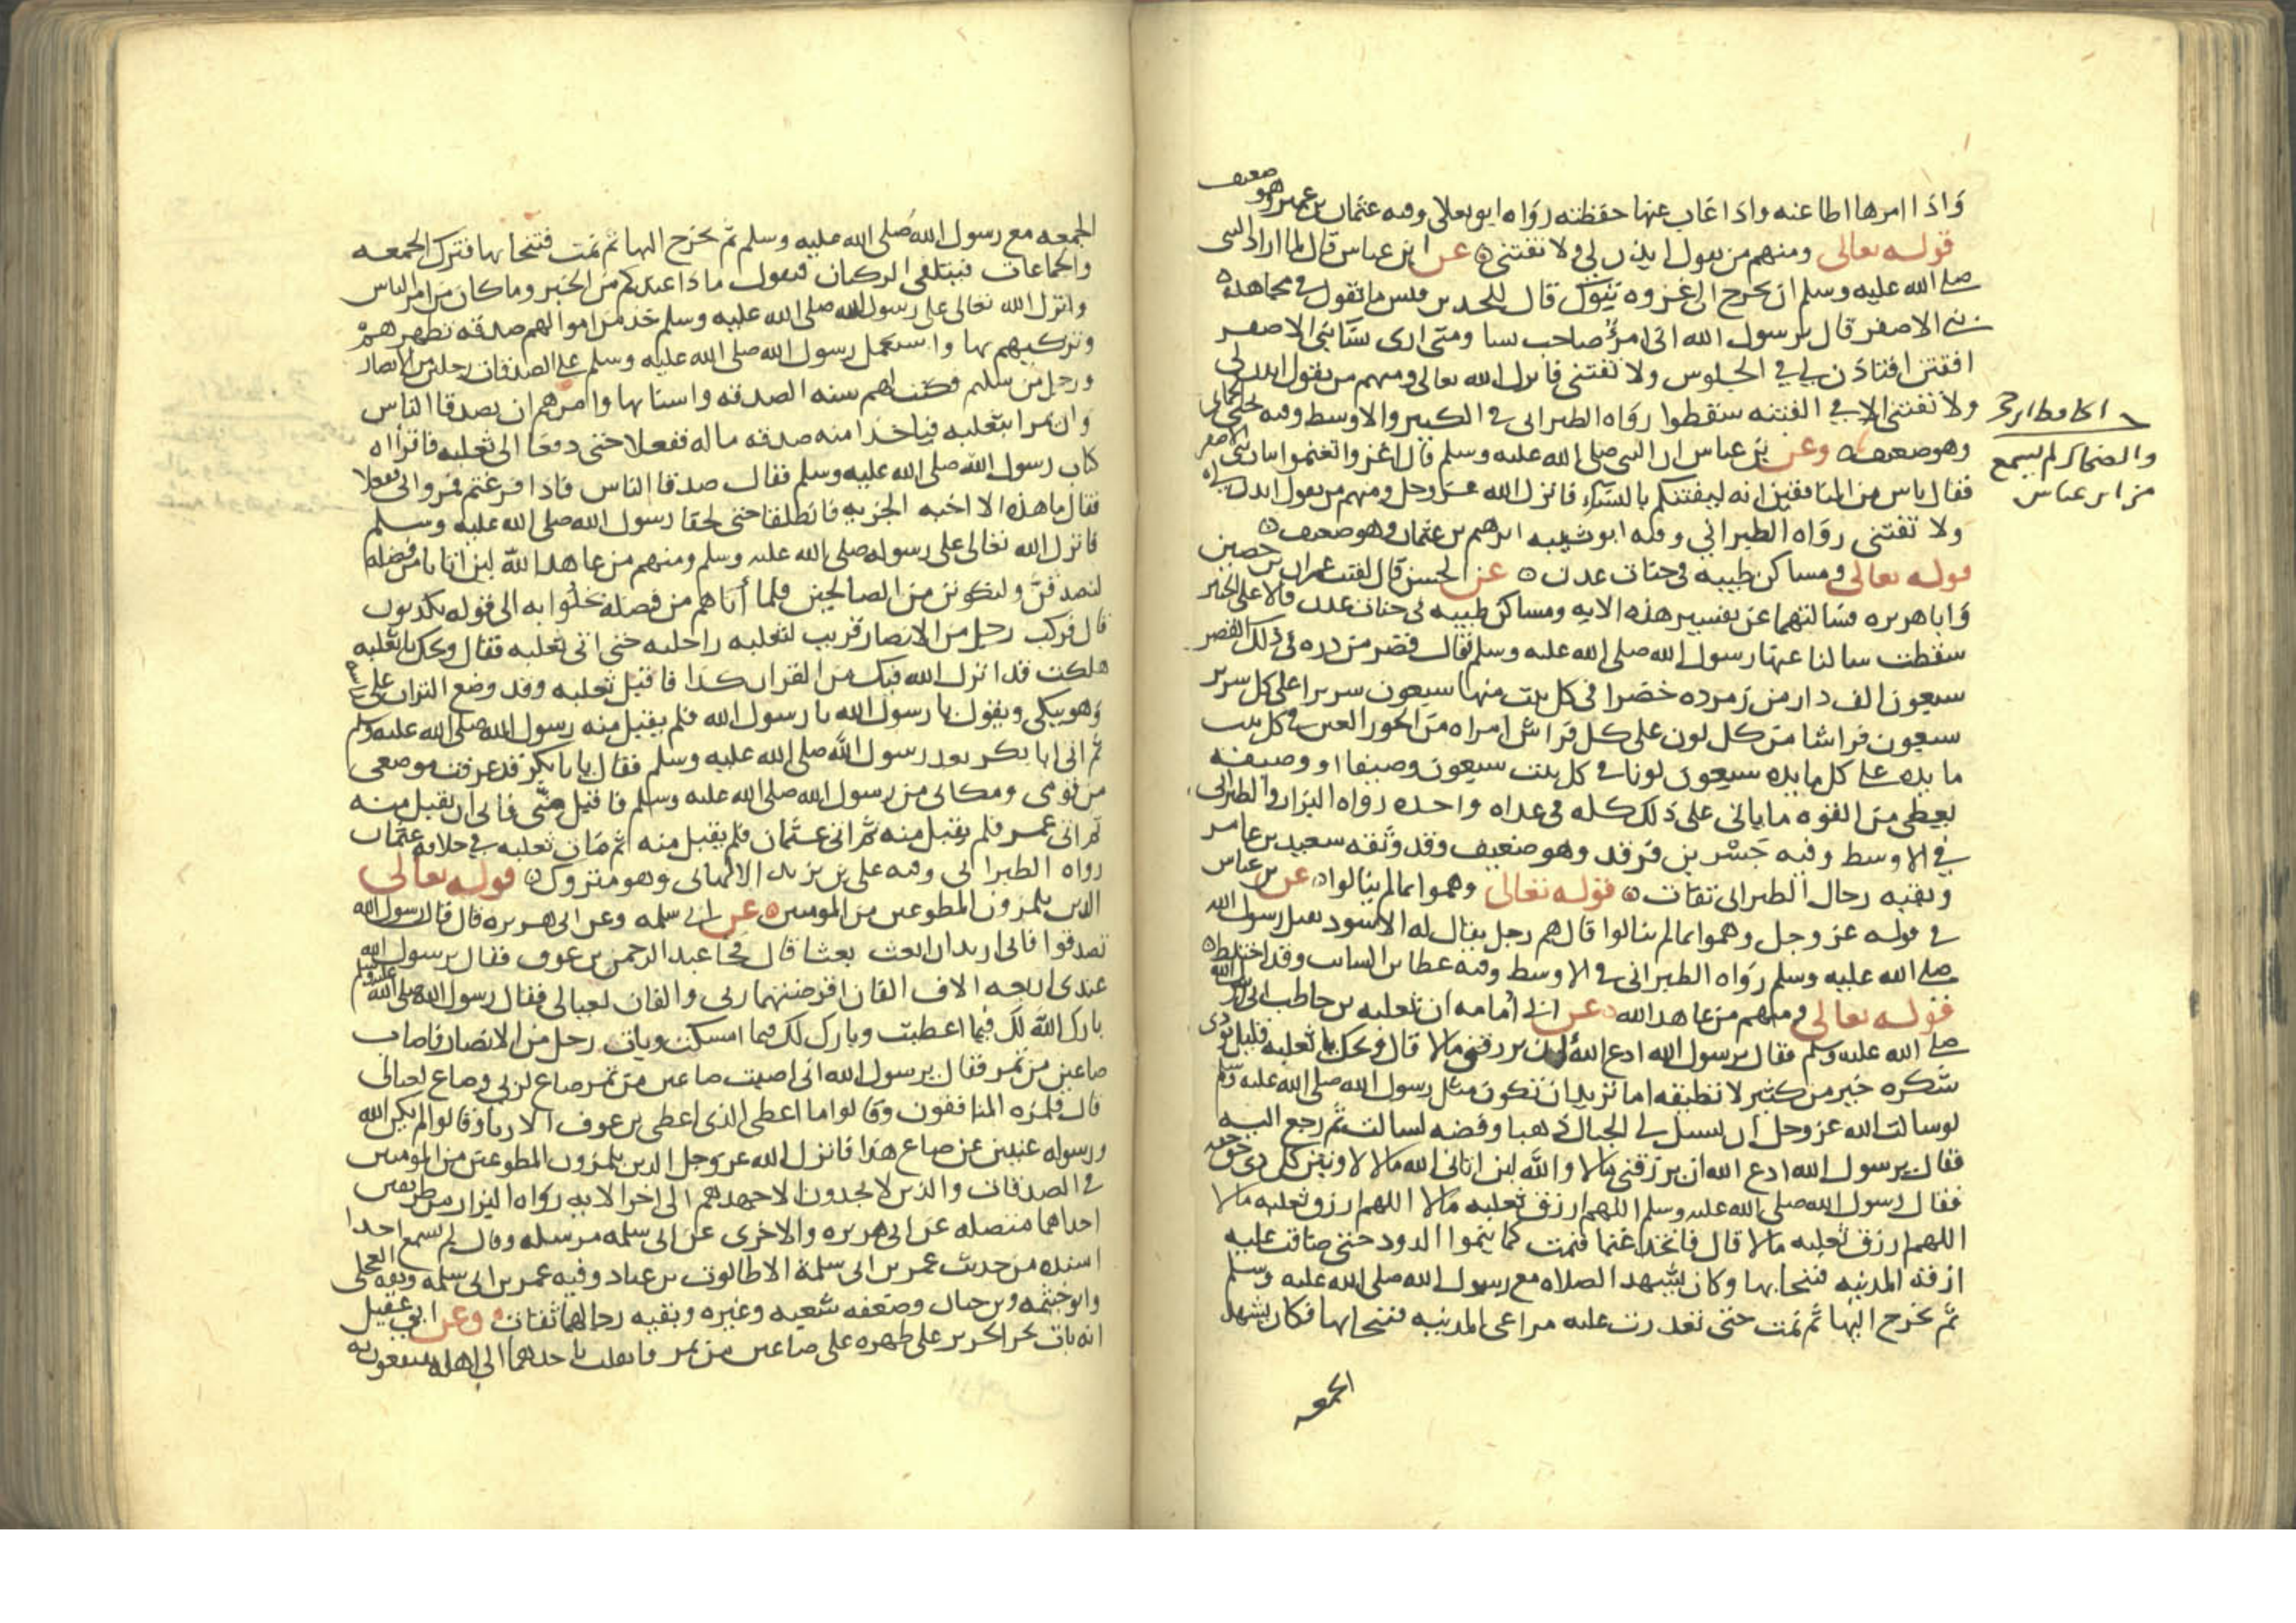 واذا امرها اطاعته واذا غاب عنها حفظته رواه ابو يعلى وفيه عثمان بن عمير وهو ضعيف
قوله تعالى ومنهم من يقول ايذن لي ولا تفتني عن ابن عباس قال لما اراد النبي
صلى الله عليه وسلم ان يخرج الى غزوه تبوك قال للجد بن قيس ما تقول في مجاهده
بني الاصفر قال يرسول الله اني امرؤ صاحب نسا ومتى ارى نسا بني الاصفر
افتتن افتاذن لي في الجلوس ولا تفتني فانزل الله تعالى ومنهم من يقول ايذن لي
ولا تفتني الا في الفتنه سقطوا رواه الطبراني في الكبير والاوسط وفيه يحيى الحماني
وهو ضعيف وعن بن عباس ان النبي صلى الله عليه وسلم قال اغزوا تغنموا بنات بني الاصفر
فقال ناس من المنافقين انه ليفتنكم بالنساء فانزل الله عز وجل ومنهم من يقول ايذن لي
ولا تفتني رواه الطبراني وفيه ابو شيبه ابرهيم بن عثمان وهو ضعيف
قوله تعالى ومساكن طيبه في جنات عدن عن الحسن قال لقيت عمران بن حصين
وابا هريره فسالتهما عن تفسير هذه الايه ومساكن طيبه في جنات عدن قالا على الخبير
سقطت سالنا عنها رسول الله صلى الله عليه وسلم فقال قصر من دره في ذلك القصر
سبعون الف دار من زمرده خضرا في كل بيت منها سبعون سريرا على كل سرير
سبعون فراشا من كل لون على كل فراش امراه من الحور العين في كل بيت
مايده على كل مايده سبعون لونا في كل بيت سبعون وصيفا او وصيفه
يعطى من القوه ما ياتي على ذلك كله في غداه واحده رواه البزار والطبراني
في الاوسط وفيه جسر بن فرقد وهو ضعيف وقد وثقه سعيد بن عامر
وبقيه رجال الطبراني ثقات قوله تعالى وهموا بما لم ينالوا عن بن عباس
في قوله عز وجل وهموا بما لم ينالوا قال هم رجل يقال له الاسود بقتل رسول الله
صلى الله عليه وسلم رواه الطبراني في الاوسط وفيه عطا بن السايب وقد اختلط
قوله تعالى ومنهم من عاهد الله عن ابي امامه ان ثعلبه بن حاطب اتى رسول الله
صلى الله عليه وسلم فقال يرسول الله ادع الله ان يرزقني مالا قال ويحك يا ثعلبه قليل تودي
شكره خير من كثير لا تطيقه اما تريد ان تكون مثل رسول الله صلى الله عليه وسلم
لو سالت الله عز وجل ان يسيل لي الجبال ذهبا وفضه لسالت ثم رجع اليه
فقال يرسول الله ادع الله ان يرزقني مالا والله لين اتاني الله مالا لاوتين كل ذي حق حقه
فقال رسول الله صلى الله عليه وسلم اللهم ارزق ثعلبه مالا اللهم ارزق ثعلبه مالا
اللهم ارزق ثعلبه مالا قال فاتخذ غنما فنمت كما ينموا الدود حتى ضاقت عليه
ازقه المدينه فتنحا بها وكان يشهد الصلاه مع رسول الله صلى الله عليه وسلم
ثم يخرج اليها ثم نمت حتى تعذرت عليه مراعي المدينه فتنحا بها فكان يشهد
الجمعه
والضحاك لم يسمع
من ابن عباس
الجمعه مع رسول الله صلى الله عليه وسلم ثم يخرج اليها ثم نمت فتنحا بها فترك الجمعه
والجماعات فيتلقى الركبان فيقول ماذا عندكم من الخبر وما كان من امر الناس
وانزل الله تعالى على رسول الله صلى الله عليه وسلم خذ من اموالهم صدقه تطهرهم
وتزكيهم بها واستعمل رسول الله صلى الله عليه وسلم على الصدقات رجلين رجل من الانصار
ورجل من سليم وكتب لهم سنه الصدقه واسنانها وامرهم ان يصدقا الناس
وان يمرا بثعلبه فياخذا منه صدقه ماله ففعلا حتى دفعا الى ثعلبه فاقرأاه
كتاب رسول الله صلى الله عليه وسلم فقال صدقا الناس فاذا فرغتم فمروا الي ففعلا
فقال ما هذه الا اخيه الجزيه فانطلقا حتى لحقا رسول الله صلى الله عليه وسلم
فانزل الله تعالى على رسوله صلى الله عليه وسلم ومنهم من عاهد الله لين اتانا من فضله
لنصدقن ولنكونن من الصالحين فلما أتاهم من فضله بخلوا به الى قوله يكذبون
قال فركب رجل من الانصار قريب لثعلبه راحلته حتى اتى ثعلبه فقال ويحك يا ثعلبه
هلكت قد انزل الله فيك من القران كذا فاقبل ثعلبه وقد وضع التراب على راسه
وهو يبكي ويقول يا رسول الله يا رسول الله فلم يقبل منه رسول الله صلى الله عليه وسلم
ثم اتى ابا بكر بعد رسول الله صلى الله عليه وسلم فقال يا با بكر قد عرفت موضعي
من قومي ومكاني من رسول الله صلى الله عليه وسلم فاقبل مني فابى ان يقبل منه
ثم اتى عمر فلم يقبل منه ثم اتى عثمان فلم يقبل منه ثم مات ثعلبه في خلافه عثمان
رواه الطبراني وفيه علي بن يزيد الالهاني وهو متروك قوله تعالى
الذين يلمزون المطوعين من المومنين عن ابي سلمه وعن ابي هريره قال قال رسول الله
تصدقوا فاني اريد ان ابعث بعثا قال فجا عبد الرحمن بن عوف فقال يرسول الله
عندي اربعه الاف الفان اقرضتهما ربي والفان لعيالي فقال رسول الله صلى الله عليه وسلم
بارك الله لك فيما اعطيت وبارك لك فيما امسكت وبات رجل من الانصار فاصاب
صاعين من تمر فقال يرسول الله اني اصبت صاعين من تمر صاع لربي وصاع لعيالي
قال فلمزه المنافقون وقالوا ما اعطى الذي اعطى بن عوف الا ريا وقالوا الم يكن الله
ورسوله غنيين عن صاع هذا فانزل الله عز وجل الذين يلمزون المطوعين من المومنين
في الصدقات والذين لا يجدون الا جهدهم الى اخر الايه رواه البزار من طريقين
احداهما متصله عن ابي هريره والاخرى عن ابي سلمه مرسله وقال لم نسمع احدا
اسنده من حديث عمر بن ابي سلمة الا طالوت بن عباد وفيه عمر بن ابي سلمه وثقه العجلي
وابو خيثمه وبن حبان وضعفه شعبه وغيره وبقيه رجالهما ثقات وعن ابي عقيل
انه بات يجر الجرير على ظهره على صاعين من تمر فانقلب باحدهما الى اهله ينتفعون به